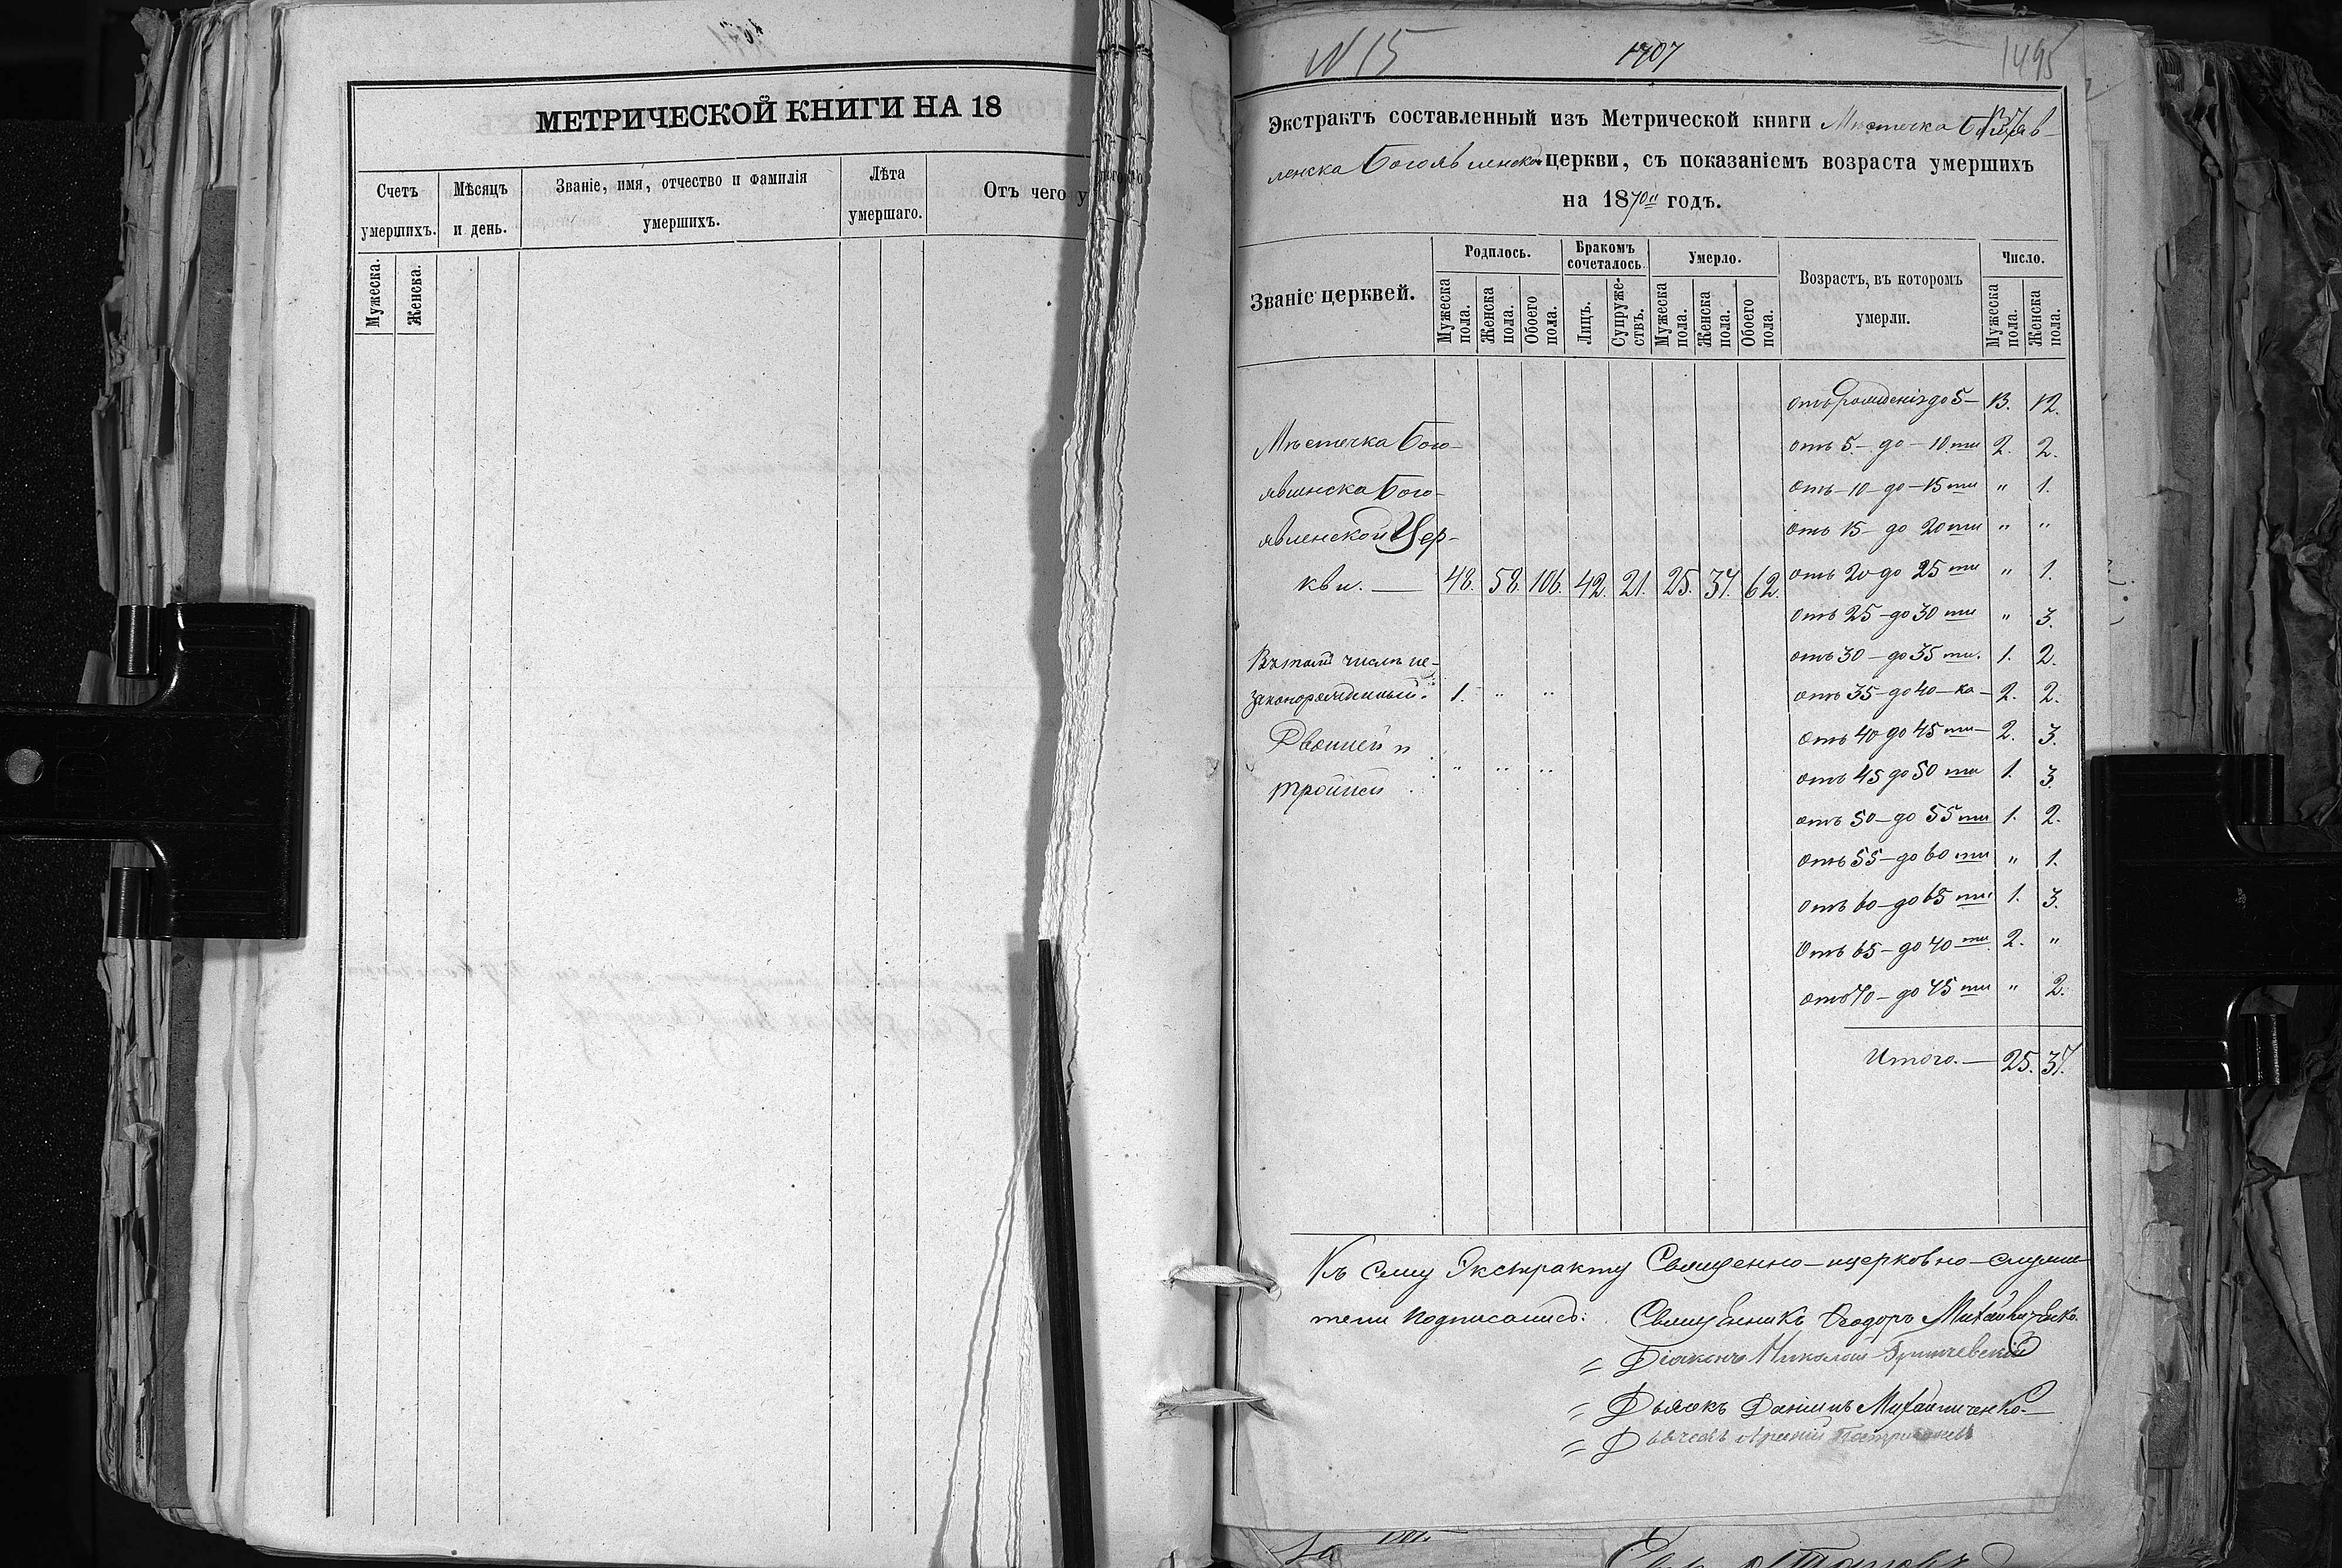 МЕТРИЧЕСКОЙ КНИГИ НА 18
Счетъ умершихъ.
Мѣсяцъ и день.
Званіе, имя, отчество и фамилія умершихъ.
Лѣта умершаго.
Отъ чего у
Мужеска.
Женска.
N 15
1707
1495
Экстрактъ составленный изъ Метрической книги Мѣстечка Богояв-
ленска Богоявленской церкви, съ показаніемъ возраста умершихъ
на 1870й годъ.
Званіе церквей.
Родилось.
Бракомъ сочеталось.
Умерло.
Возрастъ, въ котором умерли.
Число.
Мужеска пола.
Женска пола.
Обоего пола.
Лицъ.
Супруже-ствъ.
Мужеска пола.
Женска пола.
Обоего пола.
Мужеска пола.
Женска пола.
отъ рожденія до 5– 13. 12.
Мѣстечка Бого-
отъ 5.– до –10.ти 2. 2.
явленска Бого-
отъ –10– до –15ти " 1.
явленской Цер-
отъ 15– до 20ти " "
кви. — 48. 58. 106. 42. 21. 25. 37. 62.
отъ 20 до 25ти " 1.
отъ 25 – до 30ти " 3.
Въ томъ числѣ не-
отъ 30 – до 35ти. 1. 2.
законорожденный: 1. " "
отъ 35 – до 40 – ка – 2. 2.
Двойней и
отъ 40 до 45ти – 2. 3.
тройней " " "
отъ 45 до 50ти 1. 3.
отъ 50 – до 55ти 1. 2.
отъ 55 – до 60ти " 1.
отъ 60 – до 65ти 1. 3.
отъ 65 – до 70ти 2. "
отъ 70 – до 75ти " 2.
Итого. — 25. 37.
Къ сему Экстракту Священно–церковно–служи-
тели подписались: Священникъ Ѳеодоръ Михайличенко.
= Діаконъ Николай
= Дьячокъ Даніилъ Михайличенко.—
= Дьячекъ